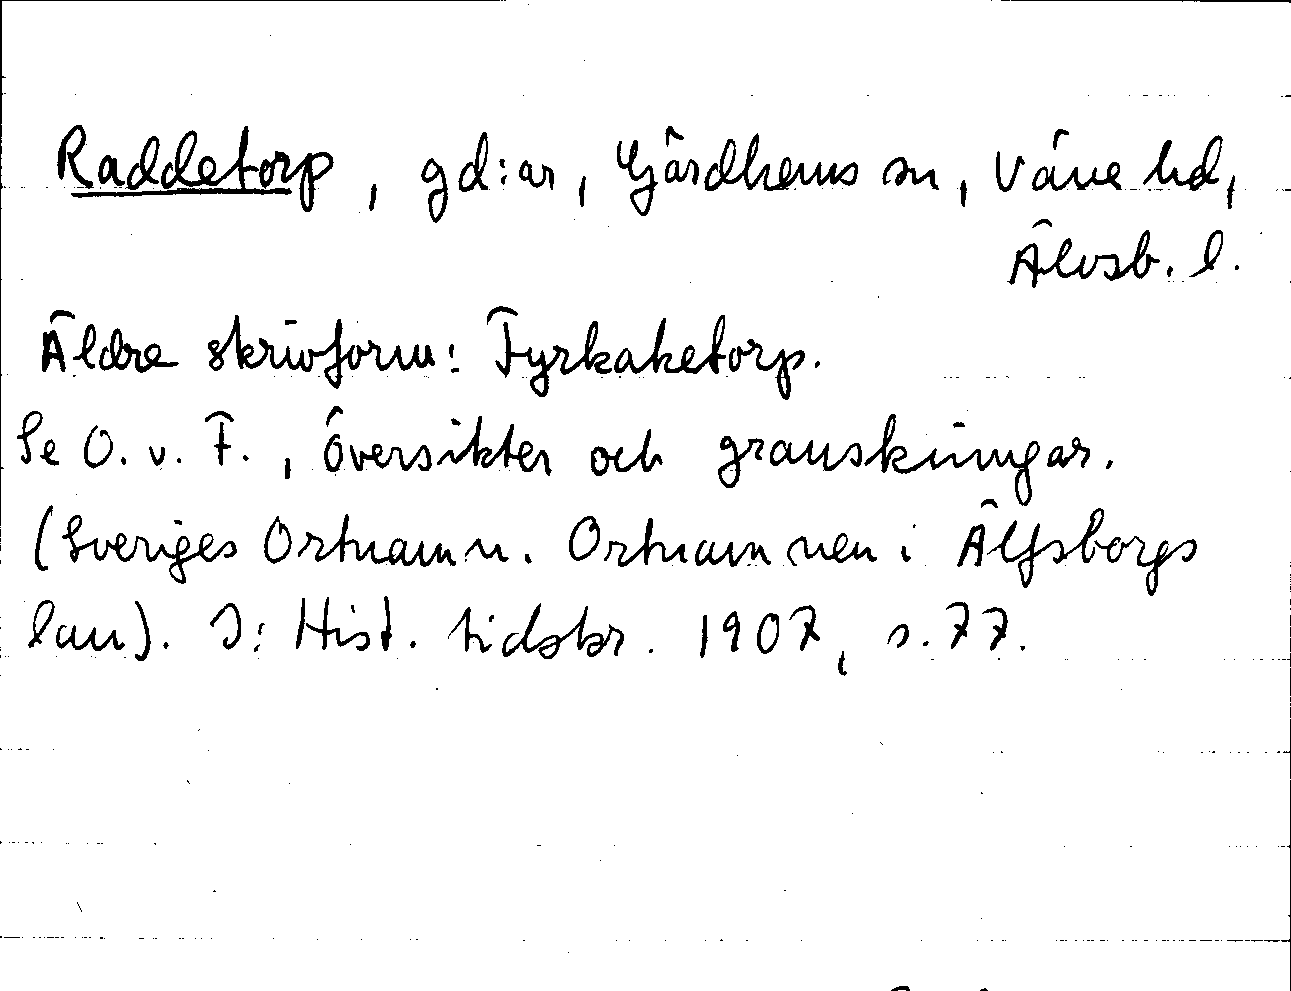 Raddetorp, gd:ar, Gärdhems sn, Väne hd,
Älvsb. l.
Äldre skrivform: Fyrkaketorp.
Se O. v. F., översikter och granskningar.
(Sveriges Ortnamn. Ortnamnen i Älfsborgs
län). I: Hist. tidskr. 1907, s. 77.